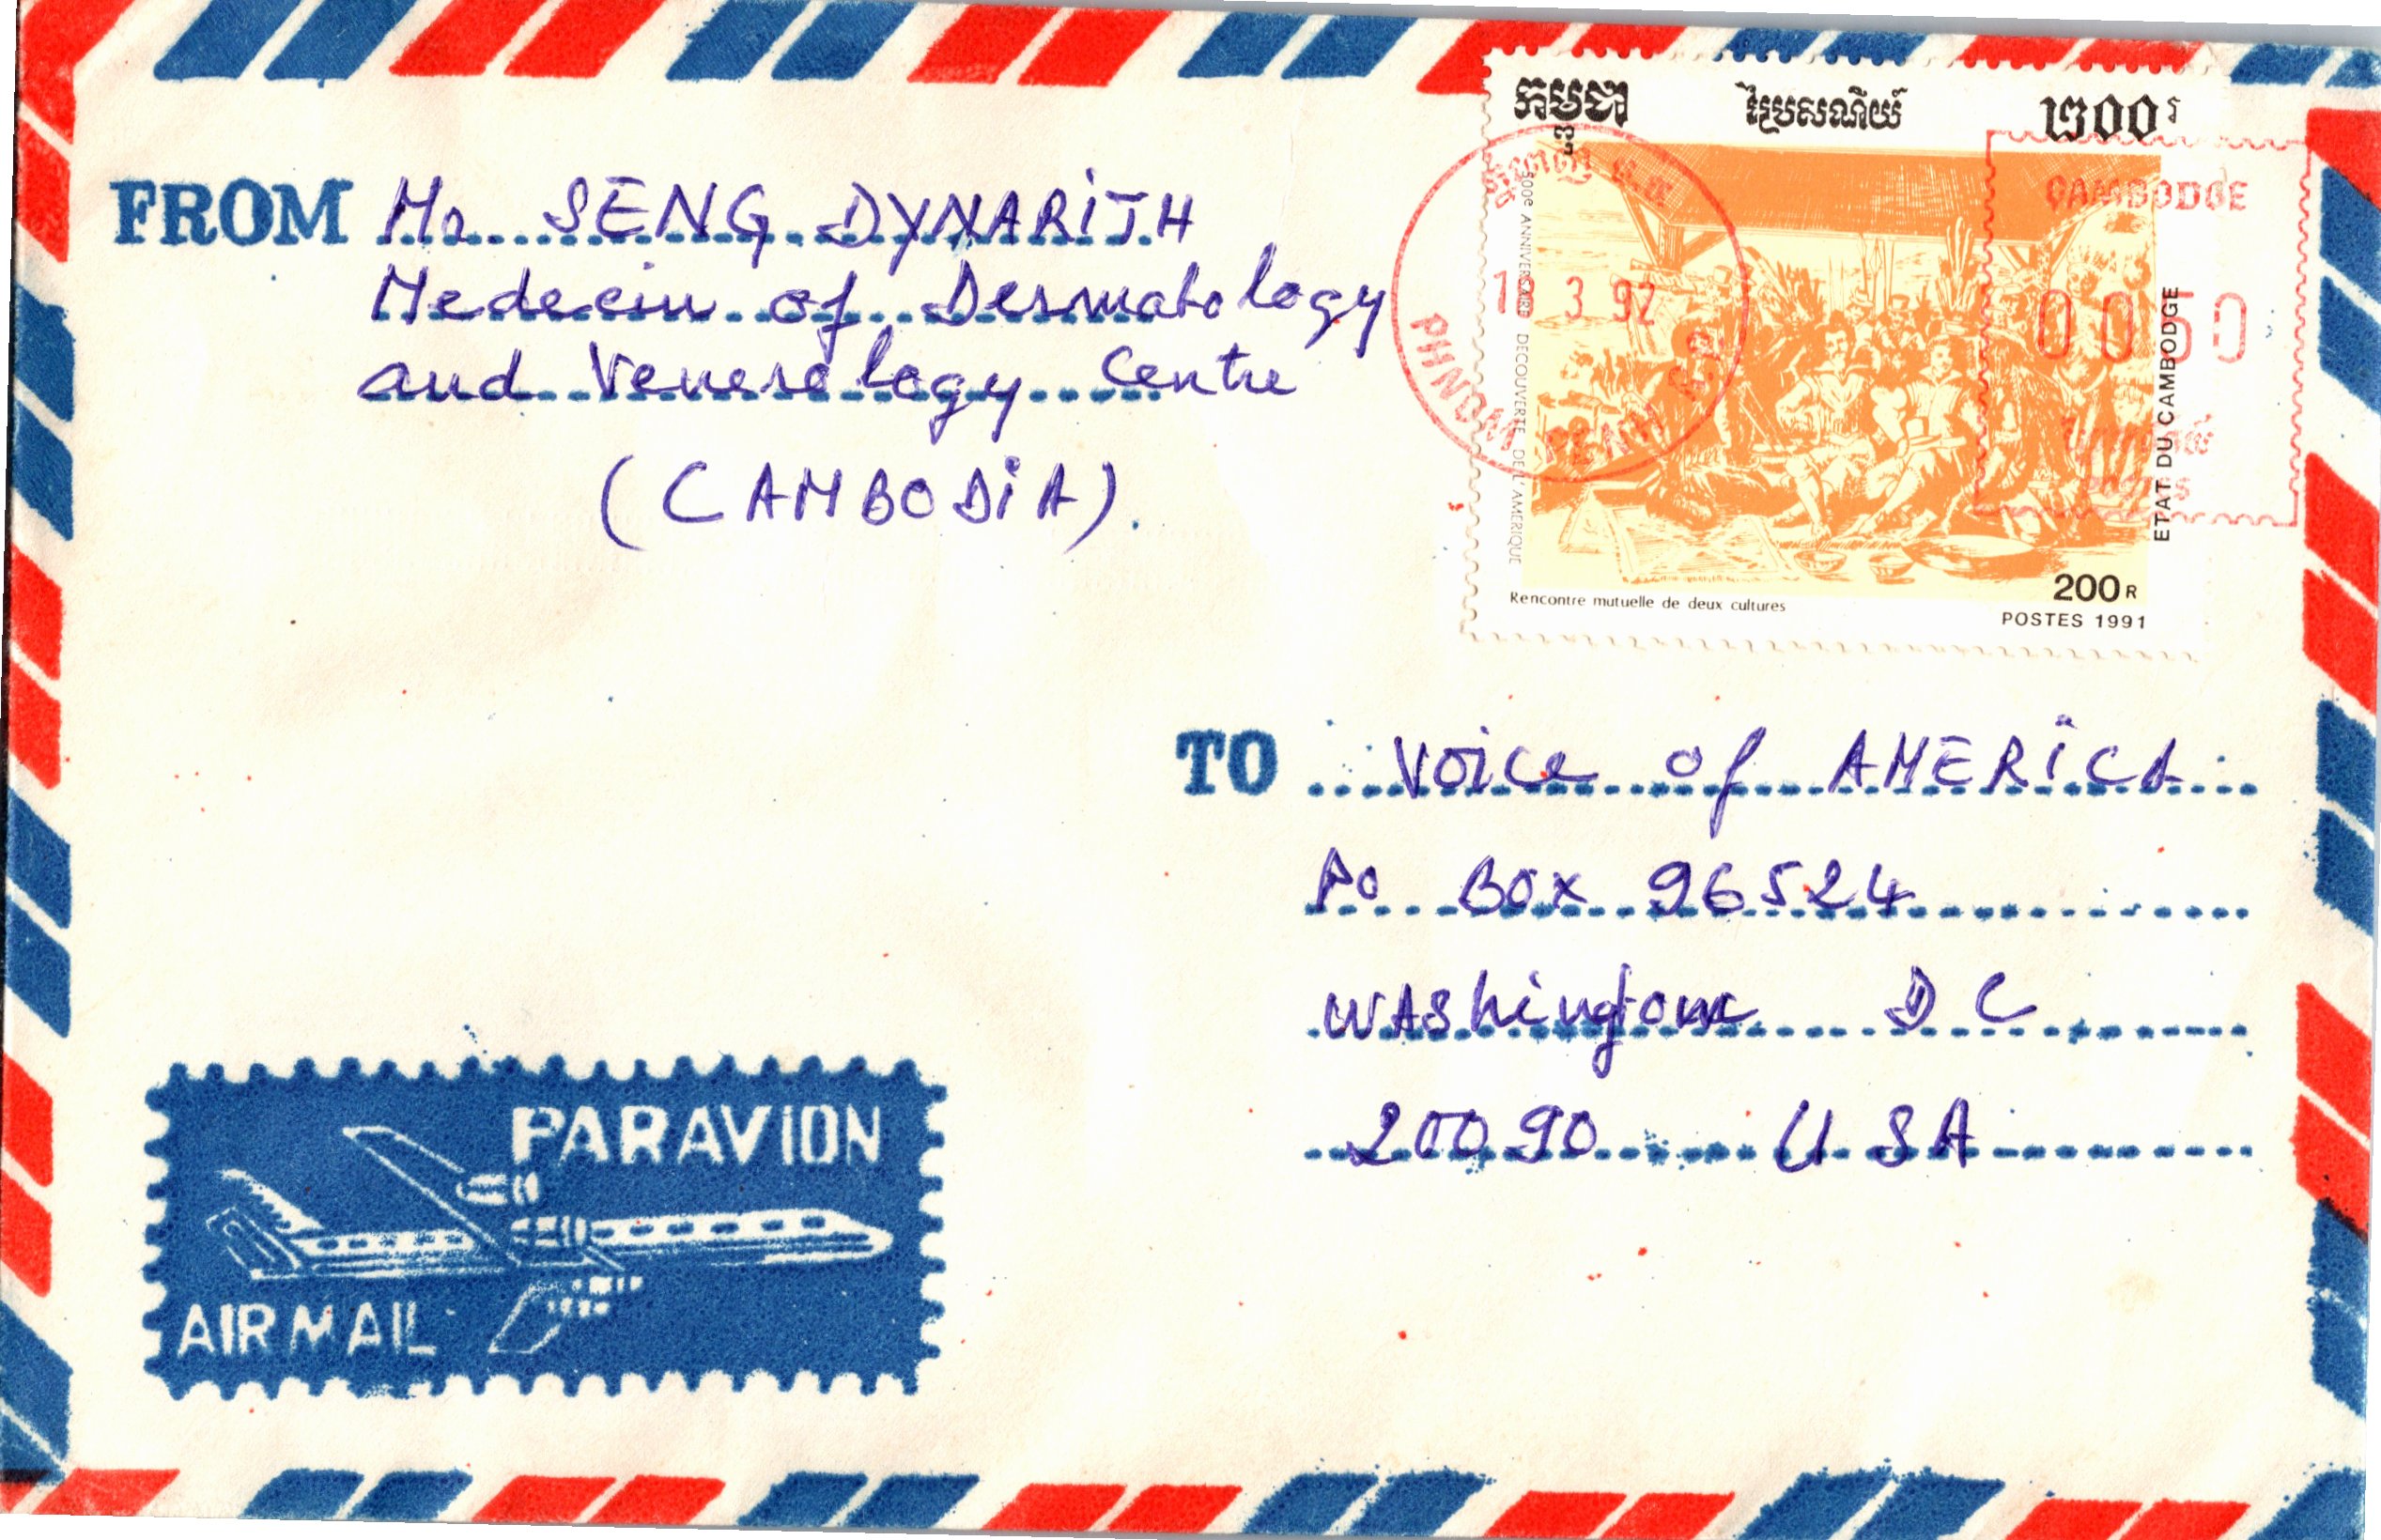 FROM Mr SENG DYNARITH
Medecin of Dermatology
and Venerology Centre
(CAMBODIA).
កម្ពុជា ប្រៃសណីយ៍ ២០០រ
500e ANNIVERSAIRE DECOUVERTE DE L'AMERIQUE
ETAT DU CAMBODGE
Rencontre mutuelle de deux cultures
200R
POSTES 1991
3 92
PHNOM PENH
CAMBODGE
0050
TO Voice of AMERICA
Po Box 96524
WAShington D C
20090 USA
PAR AVION
AIR MAIL